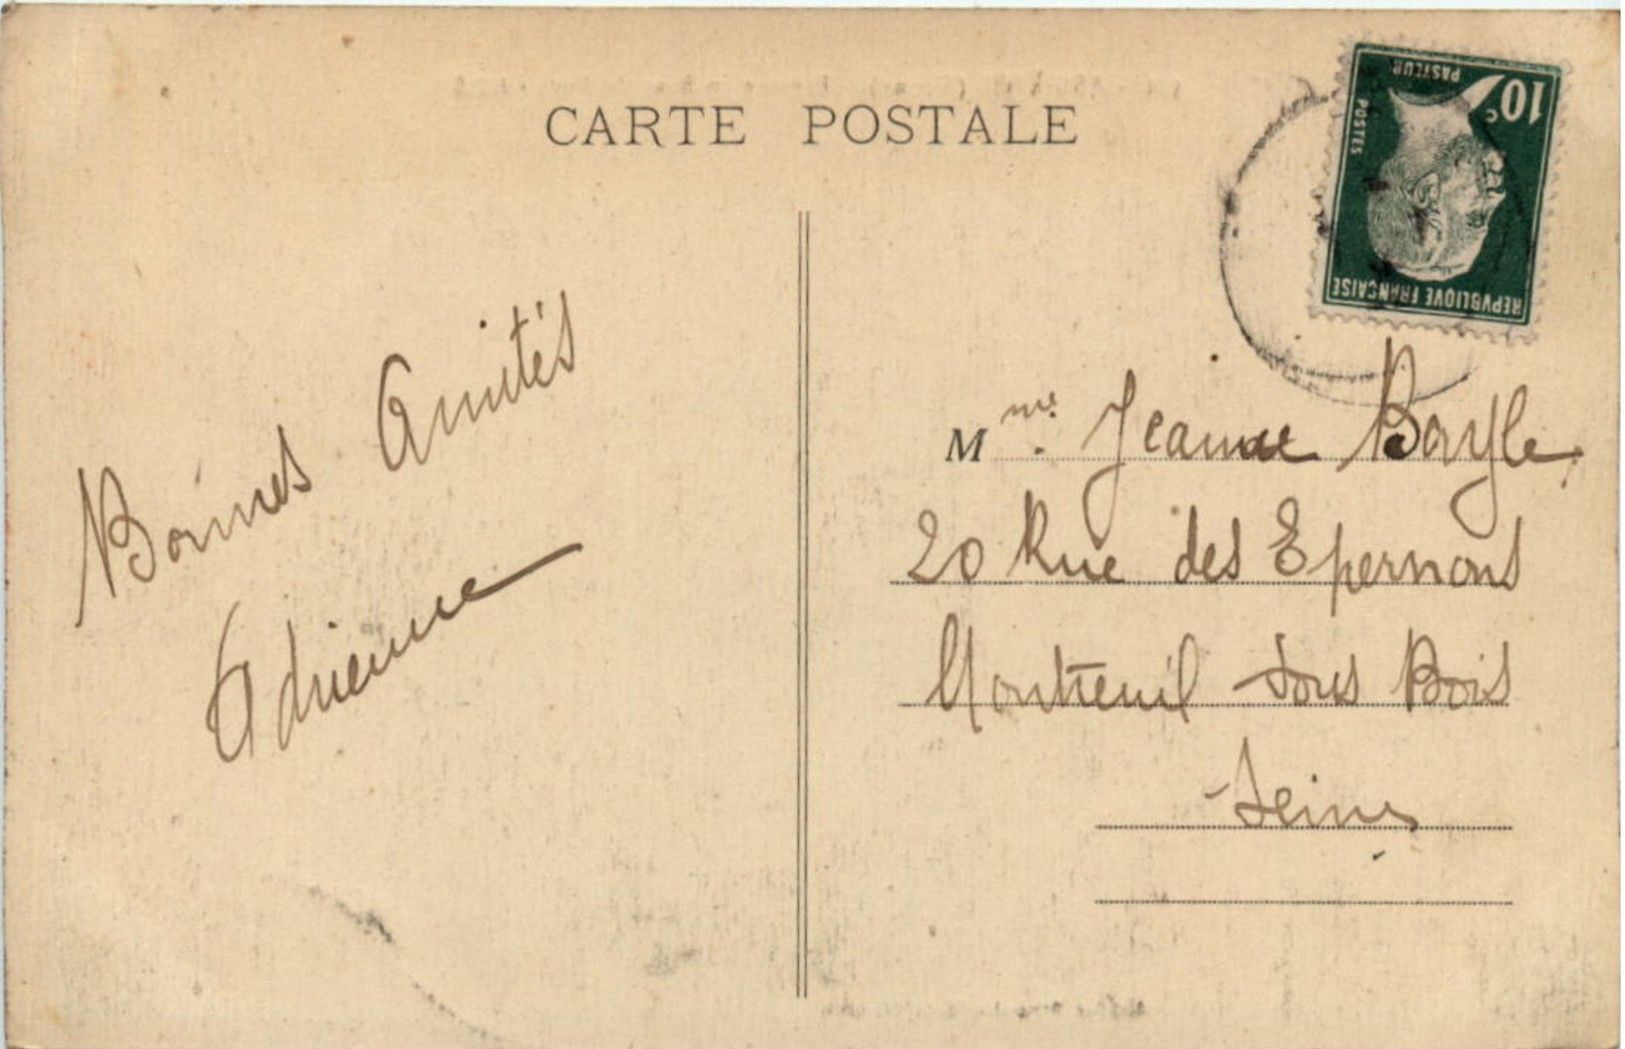 CARTE POSTALE
PASTEUR
10c
POSTES
REPVBLIQVE FRANCAISE
Bonnes Amitiés
Adrienne
Mme. Jeanne Bayle
20 Rue des Epernons
Montreuil sous Bois
Seine